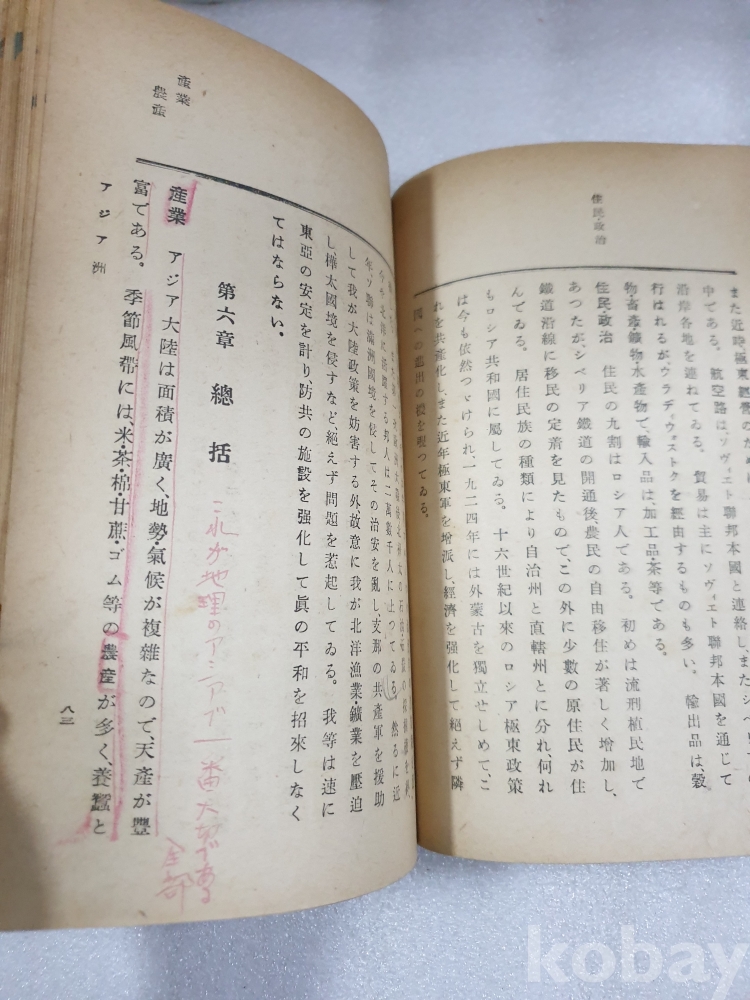 住民・政治
また近時極東經營のため
中である。航空路は、ソヴィエト聯邦本國と連絡し、また
沿岸各地を連ねてゐる。貿易は主にソヴィエト聯邦本國を通じて
行はれるが、ウラディヴォストクを經由するものも多い。輸出品は、穀
物・畜產・鑛物・水產物で、輸入品は加工品・茶等である。
住民・政治 住民の九割はロシア人である。初めは流刑植民地で
あつたが、シベリア鐵道の開通後、農民の自由移住が著しく增加し、
鐵道沿線に移民の定着を見たもので、この外に少數の原住民が住
んでゐる。居住民族の種類により自治州と直轄州とに分れ、何れ
もロシア共和國に屬してゐる。十六世紀以來のロシア極東政策
は今も依然つゞけられ一九二四年には外蒙古を獨立せしめて、こ
れを共產化し、また近年極東軍を增派し、經濟を強化して絕えず隣
國への進出の機を覗つてゐる。
今や北洋に活躍する邦人は二萬數千人に上つてゐる。然るに近
年、ソ聯は滿洲國境を侵してその治安を亂し支那の共產軍を援助
して我が大陸政策を妨害する外故意に我が北洋漁業・鑛業を壓迫
し、樺太國境を侵すなど絕えず問題を惹起してゐる。我等は速に
東亞の安定を計り、防共の施設を強化して眞の平和を招來しなく
てはならない。
第六章 總括
これが地理のアジアで一番大切である
全部
產業 アジア大陸は面積が廣く、地勢・氣候が複雜なので、天產が豐
富である。季節風帶には、米・茶・棉・甘蔗・ゴム等の農產が多く、養蠶と
產業
農產
アジア洲
八三
kobay